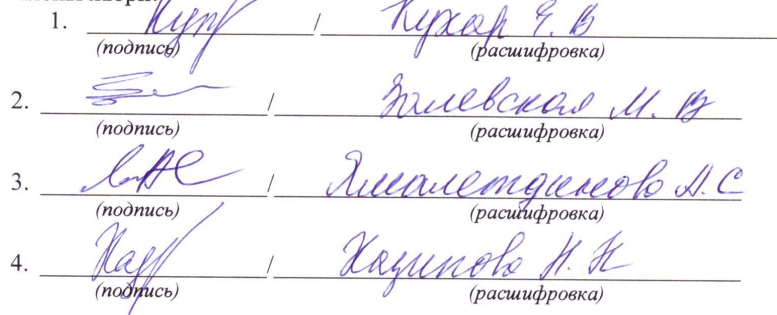 1. / Кухар Е. В
(подпись) (расшифровка)
2. / Залевская М. В
(подпись) (расшифровка)
3. / Ямалетдинова А. С
(подпись) (расшифровка)
4. / Н. Н
(подпись) (расшифровка)